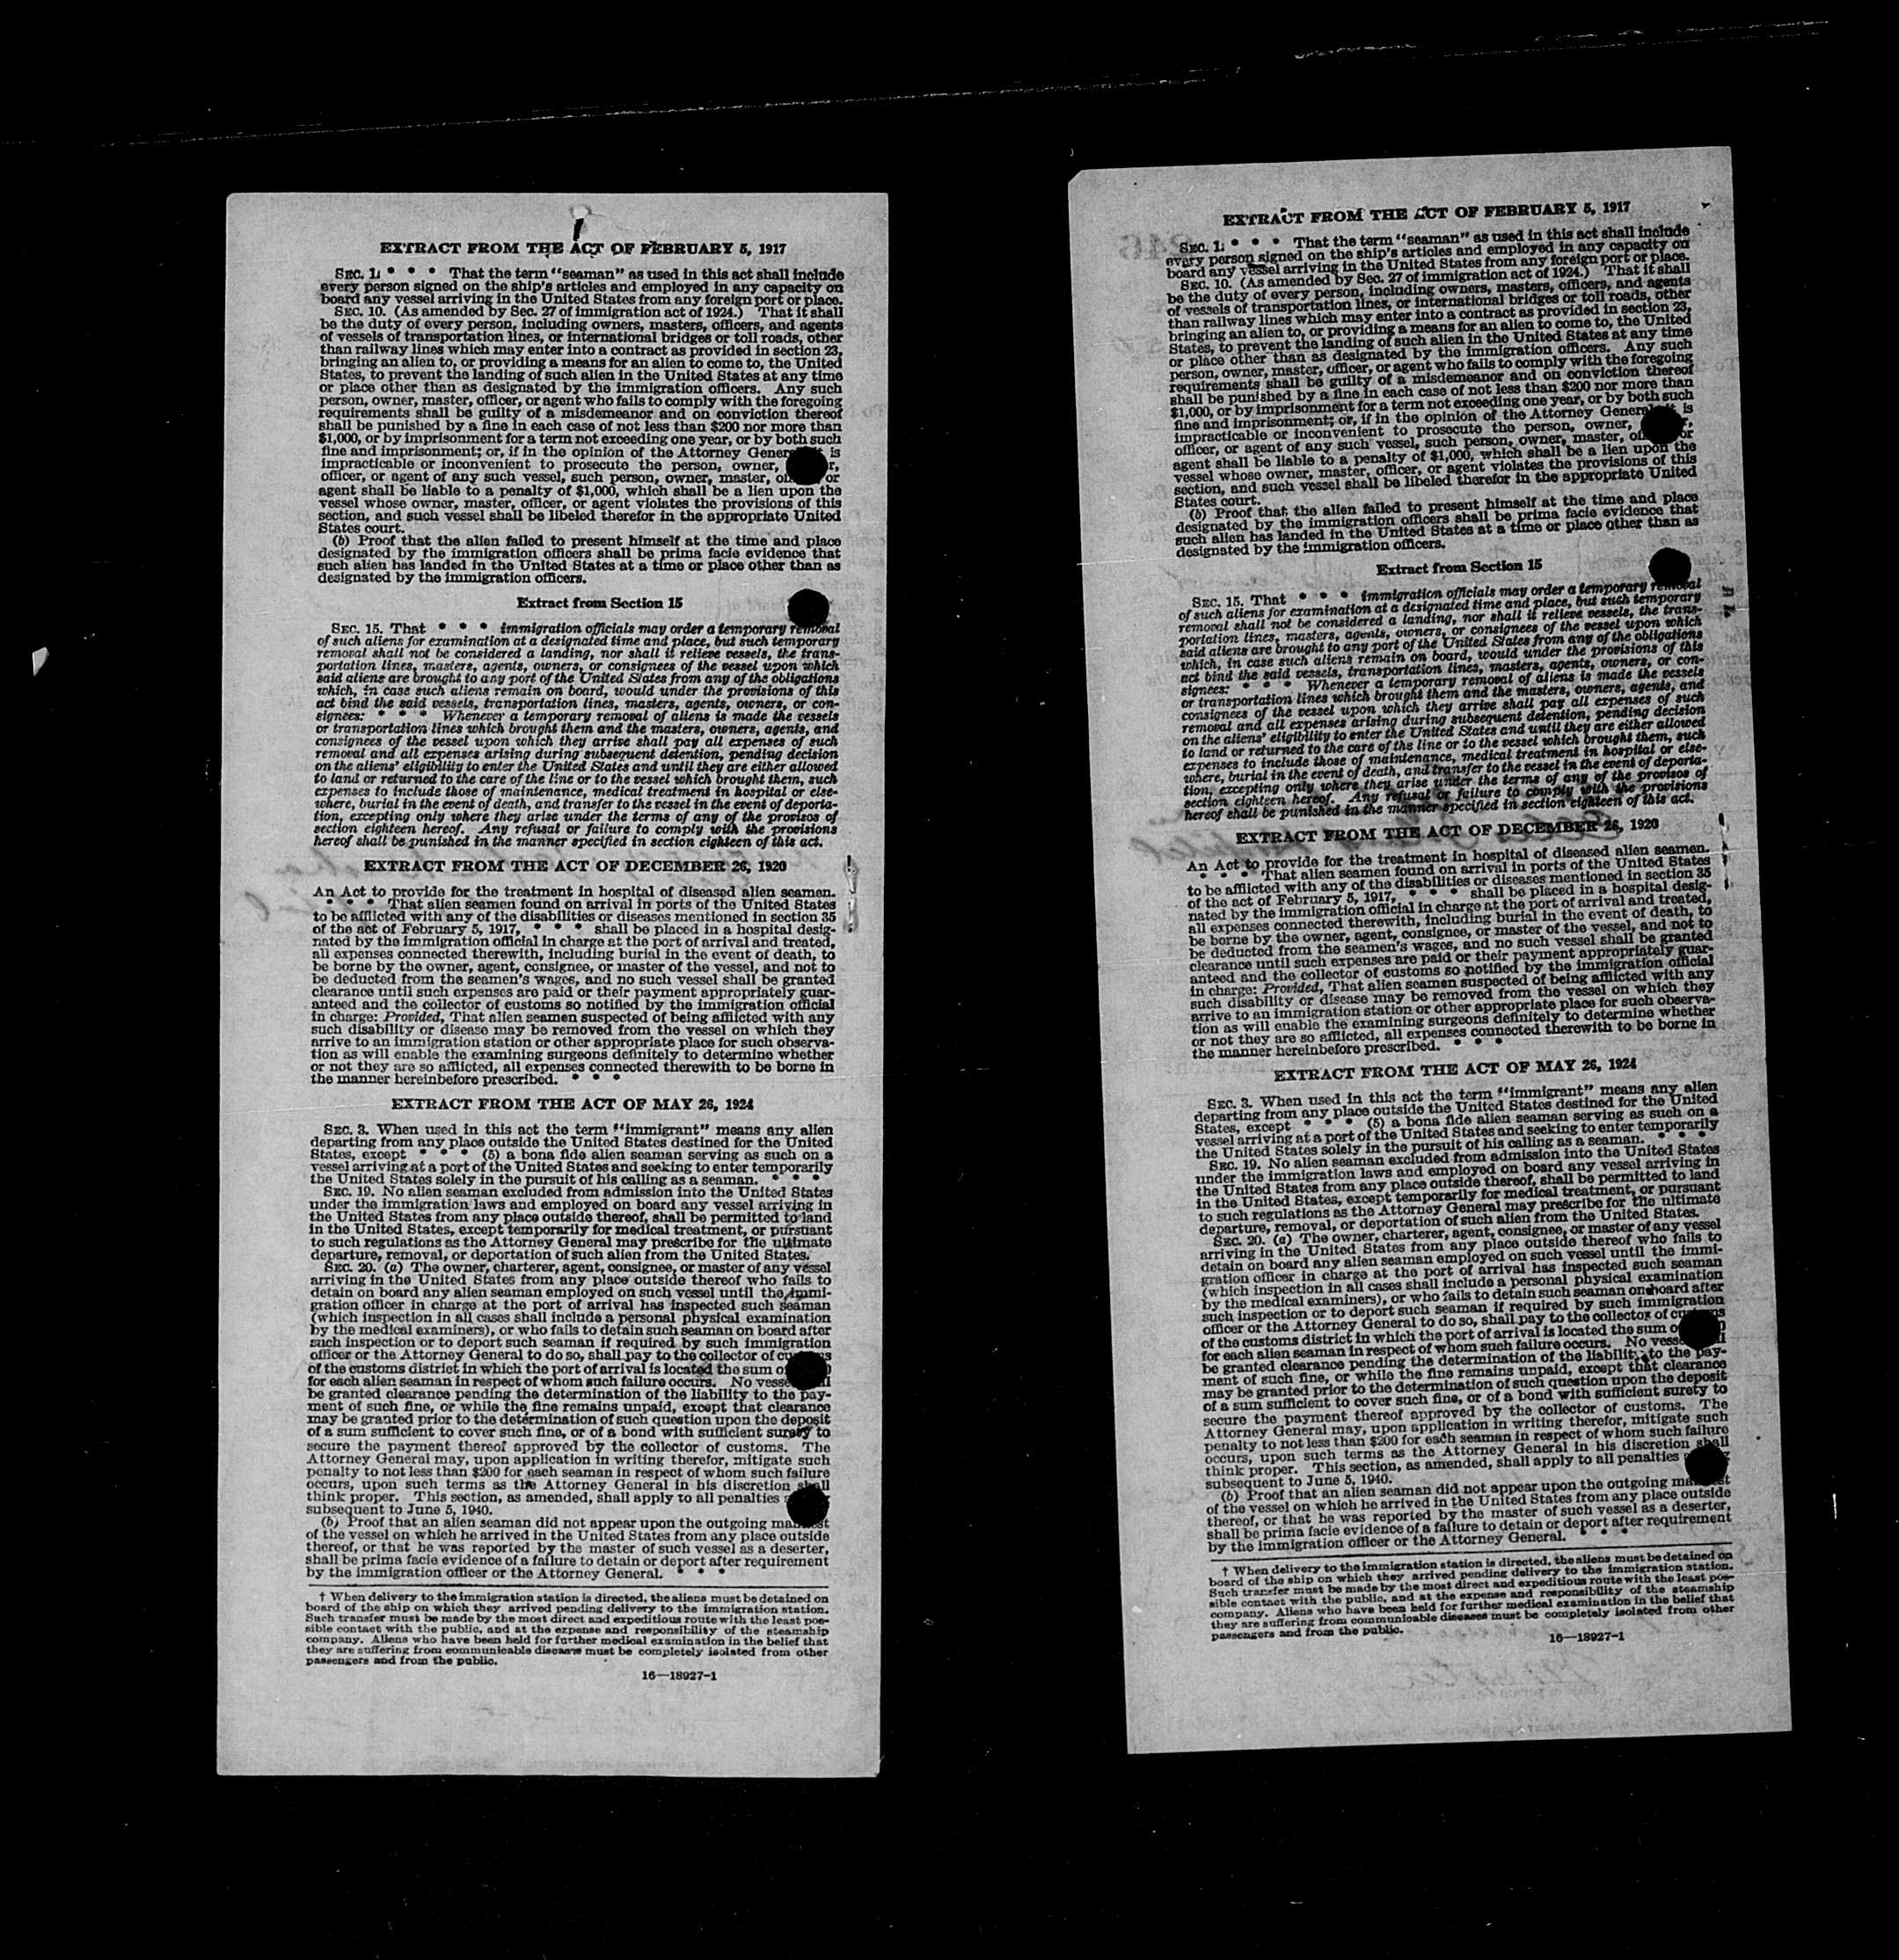 EXTRACT FROM THE ACT OF FEBRUARY 5, 1917
SEC. 1. * * * That the term "seaman" as used in this act shall include
every person signed on the ship's articles and employed in any capacity on
board any vessel arriving in the United States from any foreign port or place.
SEC. 10. (As amended by Sec. 27 of immigration act of 1924.) That it shall
be the duty of every person, including owners, masters, officers, and agents
of vessels of transportation lines, or international bridges or toll roads, other
than railway lines which may enter into a contract as provided in section 23,
bringing an alien to, or providing a means for an alien to come to, the United
States, to prevent the landing of such alien in the United States at any time
or place other than as designated by the immigration officers. Any such
person, owner, master, officer, or agent who fails to comply with the foregoing
requirements shall be guilty of a misdemeanor and on conviction thereof
shall be punished by a fine in each case of not less than $200 nor more than
$1,000, or by imprisonment for a term not exceeding one year, or by both such
fine and imprisonment; or, if in the opinion of the Attorney General is
impracticable or inconvenient to prosecute the person, owner,
officer, or agent of any such vessel, such person, owner, master, or
agent shall be liable to a penalty of $1,000, which shall be a lien upon the
vessel whose owner, master, officer, or agent violates the provisions of this
section, and such vessel shall be libeled therefor in the appropriate United
States court.
(b) Proof that the alien failed to present himself at the time and place
designated by the immigration officers shall be prima facie evidence that
such alien has landed in the United States at a time or place other than as
designated by the immigration officers.
Extract from Section 15
SEC. 15. That * * * immigration officials may order a temporary removal
of such aliens for examination at a designated time and place, but such temporary
removal shall not be considered a landing, nor shall it relieve vessels, the trans-
portation lines, masters, agents, owners, or consignees of the vessel upon which
said aliens are brought to any port of the United States from any of the obligations
which, in case such aliens remain on board, would under the provisions of this
act bind the said vessels, transportation lines, masters, agents, owners, or con-
signees: * * * Whenever a temporary removal of aliens is made the vessels
or transportation lines which brought them and the masters, owners, agents, and
consignees of the vessel upon which they arrive shall pay all expenses of such
removal and all expenses arising during subsequent detention, pending decision
on the aliens' eligibility to enter the United States and until they are either allowed
to land or returned to the care of the line or to the vessel which brought them, such
expenses to include those of maintenance, medical treatment in hospital or else-
where, burial in the event of death, and transfer to the vessel in the event of deporta-
tion, excepting only where they arise under the terms of any of the provisos of
section eighteen hereof. Any refusal or failure to comply with the provisions
hereof shall be punished in the manner specified in section eighteen of this act.
EXTRACT FROM THE ACT OF DECEMBER 26, 1920
An Act to provide for the treatment in hospital of diseased alien seamen.
* * * That alien seamen found on arrival in ports of the United States
to be afflicted with any of the disabilities or diseases mentioned in section 35
of the act of February 5, 1917, * * * shall be placed in a hospital desig-
nated by the immigration official in charge at the port of arrival and treated,
all expenses connected therewith, including burial in the event of death, to
be borne by the owner, agent, consignee, or master of the vessel, and not to
be deducted from the seamen's wages, and no such vessel shall be granted
clearance until such expenses are paid or their payment appropriately guar-
anteed and the collector of customs so notified by the immigration official
in charge: Provided, That alien seamen suspected of being afflicted with any
such disability or disease may be removed from the vessel on which they
arrive to an immigration station or other appropriate place for such observa-
tion as will enable the examining surgeons definitely to determine whether
or not they are so afflicted, all expenses connected therewith to be borne in
the manner hereinbefore prescribed. * * *
EXTRACT FROM THE ACT OF MAY 26, 1924
SEC. 3. When used in this act the term "immigrant" means any alien
departing from any place outside the United States destined for the United
States, except * * * (5) a bona fide alien seaman serving as such on a
vessel arriving at a port of the United States and seeking to enter temporarily
the United States solely in the pursuit of his calling as a seaman. * * *
SEC. 19. No alien seaman excluded from admission into the United States
under the immigration laws and employed on board any vessel arriving in
the United States from any place outside thereof, shall be permitted to land
in the United States, except temporarily for medical treatment, or pursuant
to such regulations as the Attorney General may prescribe for the ultimate
departure, removal, or deportation of such alien from the United States.
SEC. 20. (a) The owner, charterer, agent, consignee, or master of any vessel
arriving in the United States from any place outside thereof who fails to
detain on board any alien seaman employed on such vessel until the immi-
gration officer in charge at the port of arrival has inspected such seaman
(which inspection in all cases shall include a personal physical examination
by the medical examiners), or who fails to detain such seaman on board after
such inspection or to deport such seaman if required by such immigration
officer or the Attorney General to do so, shall pay to the collector of customs
of the customs district in which the port of arrival is located the sum
for each alien seaman in respect of whom such failure occurs. No
be granted clearance pending the determination of the liability to the pay-
ment of such fine, or while the fine remains unpaid, except that clearance
may be granted prior to the determination of such question upon the deposit
of a sum sufficient to cover such fine, or of a bond with sufficient surety to
secure the payment thereof approved by the collector of customs. The
Attorney General may, upon application in writing therefor, mitigate such
penalty to not less than $200 for each seaman in respect of whom such failure
occurs, upon such terms as the Attorney General in his discretion shall
think proper. This section, as amended, shall apply to all penalties
subsequent to June 5, 1940.
(b) Proof that an alien seaman did not appear upon the outgoing
of the vessel on which he arrived in the United States from any place outside
thereof, or that he was reported by the master of such vessel as a deserter,
shall be prima facie evidence of a failure to detain or deport after requirement
by the immigration officer or the Attorney General. * * *
† When delivery to the immigration station is directed, the aliens must be detained on
board of the ship on which they arrived pending delivery to the immigration station.
Such transfer must be made by the most direct and expeditious route with the least pos-
sible contact with the public, and at the expense and responsibility of the steamship
company. Aliens who have been held for further medical examination in the belief that
they are suffering from communicable diseases must be completely isolated from other
passengers and from the public.
16—18927-1
EXTRACT FROM THE ACT OF FEBRUARY 5, 1917
SEC. 1. * * * That the term "seaman" as used in this act shall include
every person signed on the ship's articles and employed in any capacity on
board any vessel arriving in the United States from any foreign port or place.
SEC. 10. (As amended by Sec. 27 of immigration act of 1924.) That it shall
be the duty of every person, including owners, masters, officers, and agents
of vessels of transportation lines, or international bridges or toll roads, other
than railway lines which may enter into a contract as provided in section 23,
bringing an alien to, or providing a means for an alien to come to, the United
States, to prevent the landing of such alien in the United States at any time
or place other than as designated by the immigration officers. Any such
person, owner, master, officer, or agent who fails to comply with the foregoing
requirements shall be guilty of a misdemeanor and on conviction thereof
shall be punished by a fine in each case of not less than $200 nor more than
$1,000, or by imprisonment for a term not exceeding one year, or by both such
fine and imprisonment; or, if in the opinion of the Attorney General is
impracticable or inconvenient to prosecute the person, owner,
officer, or agent of any such vessel, such person, owner, master, or
agent shall be liable to a penalty of $1,000, which shall be a lien upon the
vessel whose owner, master, officer, or agent violates the provisions of this
section, and such vessel shall be libeled therefor in the appropriate United
States court.
(b) Proof that the alien failed to present himself at the time and place
designated by the immigration officers shall be prima facie evidence that
such alien has landed in the United States at a time or place other than as
designated by the immigration officers.
Extract from Section 15
SEC. 15. That * * * immigration officials may order a temporary removal
of such aliens for examination at a designated time and place, but such temporary
removal shall not be considered a landing, nor shall it relieve vessels, the trans-
portation lines, masters, agents, owners, or consignees of the vessel upon which
said aliens are brought to any port of the United States from any of the obligations
which, in case such aliens remain on board, would under the provisions of this
act bind the said vessels, transportation lines, masters, agents, owners, or con-
signees: * * * Whenever a temporary removal of aliens is made the vessels
or transportation lines which brought them and the masters, owners, agents, and
consignees of the vessel upon which they arrive shall pay all expenses of such
removal and all expenses arising during subsequent detention, pending decision
on the aliens' eligibility to enter the United States and until they are either allowed
to land or returned to the care of the line or to the vessel which brought them, such
expenses to include those of maintenance, medical treatment in hospital or else-
where, burial in the event of death, and transfer to the vessel in the event of deporta-
tion, excepting only where they arise under the terms of any of the provisos of
section eighteen hereof. Any refusal or failure to comply with the provisions
hereof shall be punished in the manner specified in section eighteen of this act.
EXTRACT FROM THE ACT OF DECEMBER 26, 1920
An Act to provide for the treatment in hospital of diseased alien seamen.
* * * That alien seamen found on arrival in ports of the United States
to be afflicted with any of the disabilities or diseases mentioned in section 35
of the act of February 5, 1917, * * * shall be placed in a hospital desig-
nated by the immigration official in charge at the port of arrival and treated,
all expenses connected therewith, including burial in the event of death, to
be borne by the owner, agent, consignee, or master of the vessel, and not to
be deducted from the seamen's wages, and no such vessel shall be granted
clearance until such expenses are paid or their payment appropriately guar-
anteed and the collector of customs so notified by the immigration official
in charge: Provided, That alien seamen suspected of being afflicted with any
such disability or disease may be removed from the vessel on which they
arrive to an immigration station or other appropriate place for such observa-
tion as will enable the examining surgeons definitely to determine whether
or not they are so afflicted, all expenses connected therewith to be borne in
the manner hereinbefore prescribed. * * *
EXTRACT FROM THE ACT OF MAY 26, 1924
SEC. 3. When used in this act the term "immigrant" means any alien
departing from any place outside the United States destined for the United
States, except * * * (5) a bona fide alien seaman serving as such on a
vessel arriving at a port of the United States and seeking to enter temporarily
the United States solely in the pursuit of his calling as a seaman. * * *
SEC. 19. No alien seaman excluded from admission into the United States
under the immigration laws and employed on board any vessel arriving in
the United States from any place outside thereof, shall be permitted to land
in the United States, except temporarily for medical treatment, or pursuant
to such regulations as the Attorney General may prescribe for the ultimate
departure, removal, or deportation of such alien from the United States.
SEC. 20. (a) The owner, charterer, agent, consignee, or master of any vessel
arriving in the United States from any place outside thereof who fails to
detain on board any alien seaman employed on such vessel until the immi-
gration officer in charge at the port of arrival has inspected such seaman
(which inspection in all cases shall include a personal physical examination
by the medical examiners), or who fails to detain such seaman on board after
such inspection or to deport such seaman if required by such immigration
officer or the Attorney General to do so, shall pay to the collector of customs
of the customs district in which the port of arrival is located the sum
for each alien seaman in respect of whom such failure occurs. No
be granted clearance pending the determination of the liability to the pay-
ment of such fine, or while the fine remains unpaid, except that clearance
may be granted prior to the determination of such question upon the deposit
of a sum sufficient to cover such fine, or of a bond with sufficient surety to
secure the payment thereof approved by the collector of customs. The
Attorney General may, upon application in writing therefor, mitigate such
penalty to not less than $200 for each seaman in respect of whom such failure
occurs, upon such terms as the Attorney General in his discretion shall
think proper. This section, as amended, shall apply to all penalties
subsequent to June 5, 1940.
(b) Proof that an alien seaman did not appear upon the outgoing
of the vessel on which he arrived in the United States from any place outside
thereof, or that he was reported by the master of such vessel as a deserter,
shall be prima facie evidence of a failure to detain or deport after requirement
by the immigration officer or the Attorney General. * * *
† When delivery to the immigration station is directed, the aliens must be detained on
board of the ship on which they arrived pending delivery to the immigration station.
Such transfer must be made by the most direct and expeditious route with the least pos-
sible contact with the public, and at the expense and responsibility of the steamship
company. Aliens who have been held for further medical examination in the belief that
they are suffering from communicable diseases must be completely isolated from other
passengers and from the public.
16—18927-1